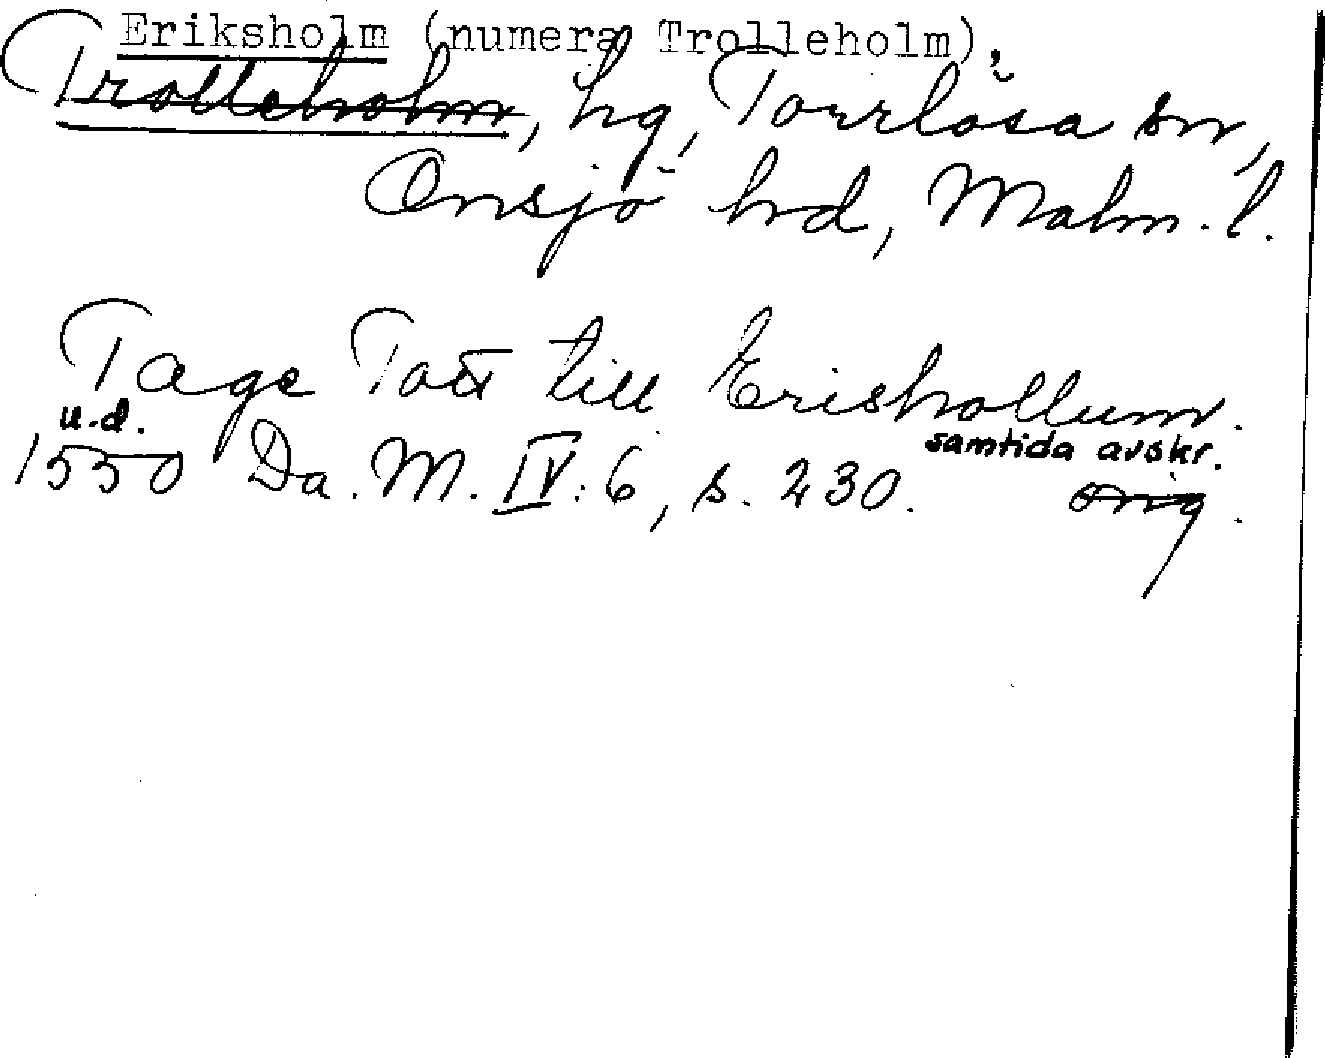 Eriksholm (numera Trolleholm),
Trolleholm, hg, Torrlösa sn,
Onsjö hd, Malm. l.
Tage Tott till Erishollum.
u.d. samtida avskr.
1550 Da. M. IV: 6, s. 230. orig.